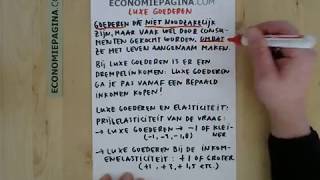 ECONOMIEPAGINA.COM
LUXE GOEDEREN
GOEDEREN DIE NIET NOODZAKELIJK
ZIJN, MAAR VAAK WEL DOOR CONSU-
MENTEN GEKOCHT WORDEN, OMDAT
ZE HET LEVEN AANGENAAM MAKEN.
BIJ LUXE GOEDEREN IS ER EEN
DREMPELINKOMEN: LUXE GOEDEREN
GA JE PAS VANAF EEN BEPAALD
INKOMEN KOPEN!
LUXE GOEDEREN EN ELASTICITEIT:
PRIJSELASTICITEIT VAN DE VRAAG:
→ LUXE GOEDEREN → -1 OF KLEI-
NER
→ LUXE GOEDEREN BIJ DE INKOM-
ENELASTICITEIT: +1 OF GROTER
(+1, +3, +1,5 ETC.)
ECONOMIEPAGINA.COM